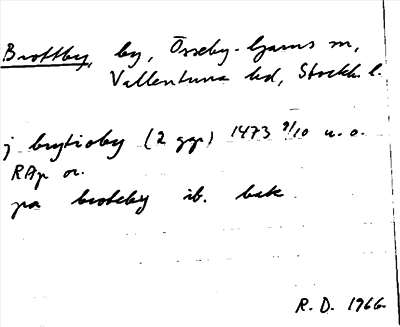 Brottby, by, Össeby-Garns sn,
Vallentuna hd, Stockh. l.
j brytioby (2 ggr) 1473 9/10 u. o.
RAp or.
pa broteby ib. bak
R. D. 1966.